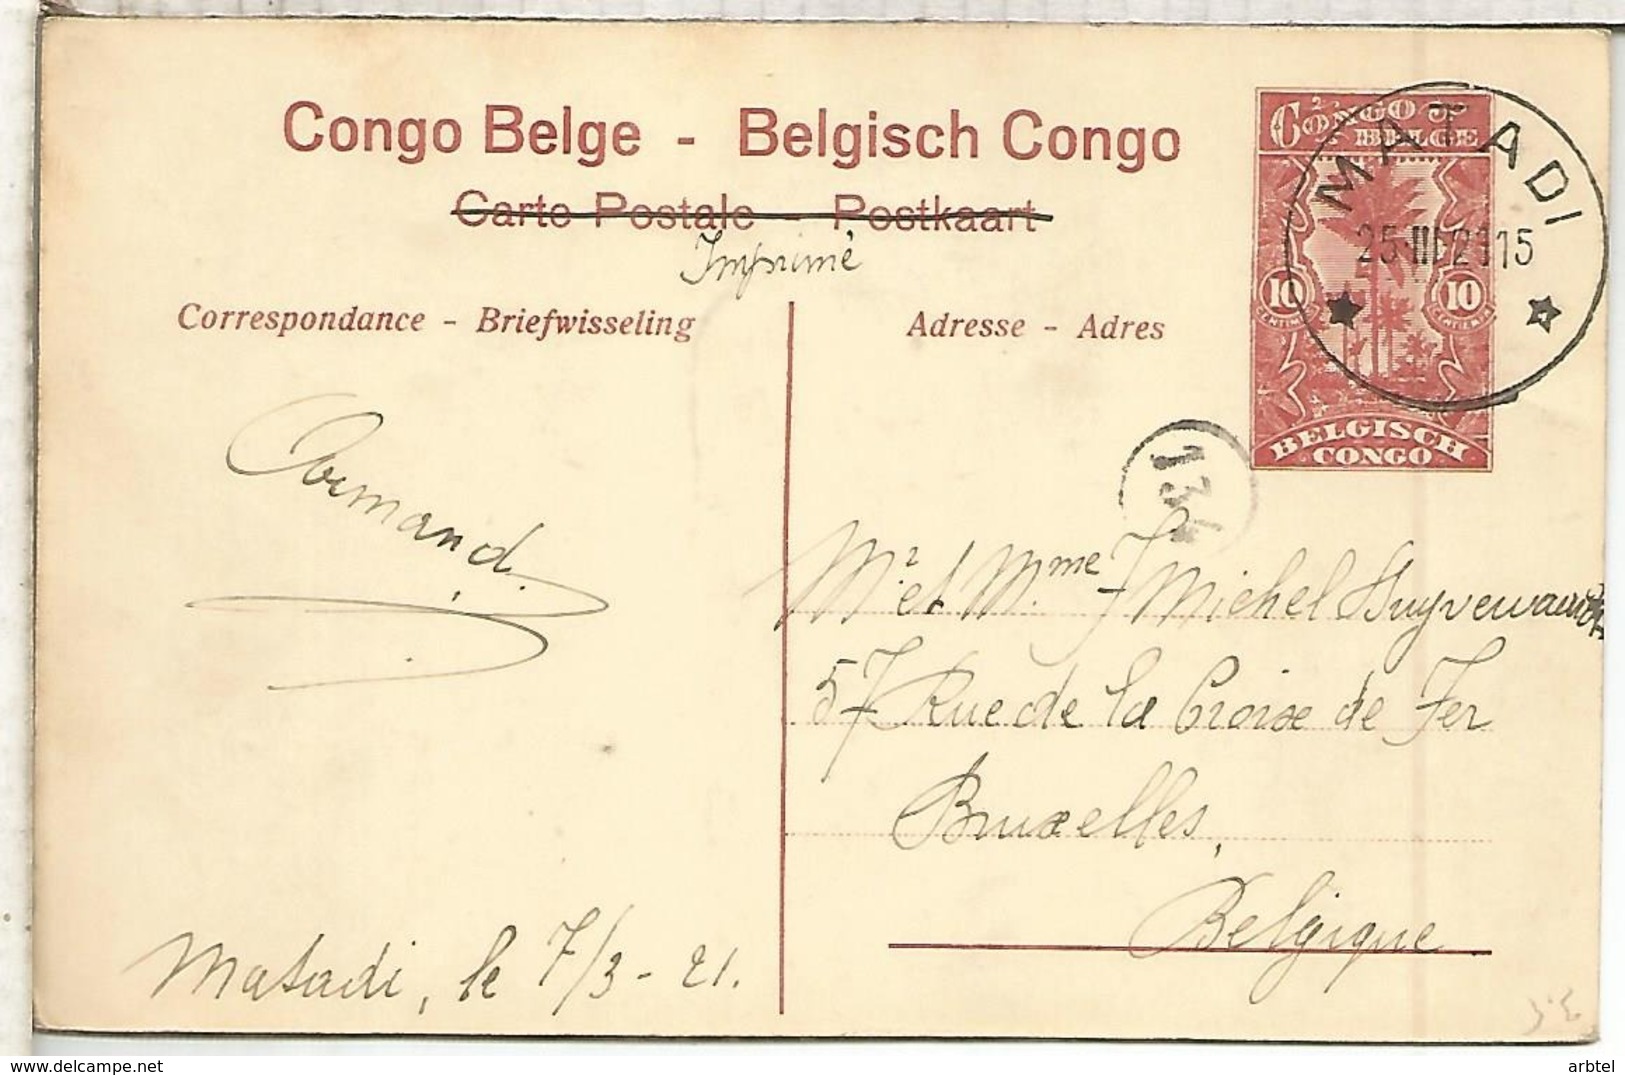 Congo Belge - Belgisch Congo
Carte Postale - Postkaart
Imprimé
Correspondance - Briefwisseling
Adresse - Adres
CONGO BELGE
10 10
BELGISCH
CONGO
MATADI
25 III 21 15
134
Armand
Matadi, le 7/3 - 21.
Mr et Mme J Michel
57 Rue de la Croix de Fer
Bruxelles,
Belgique
arbtel